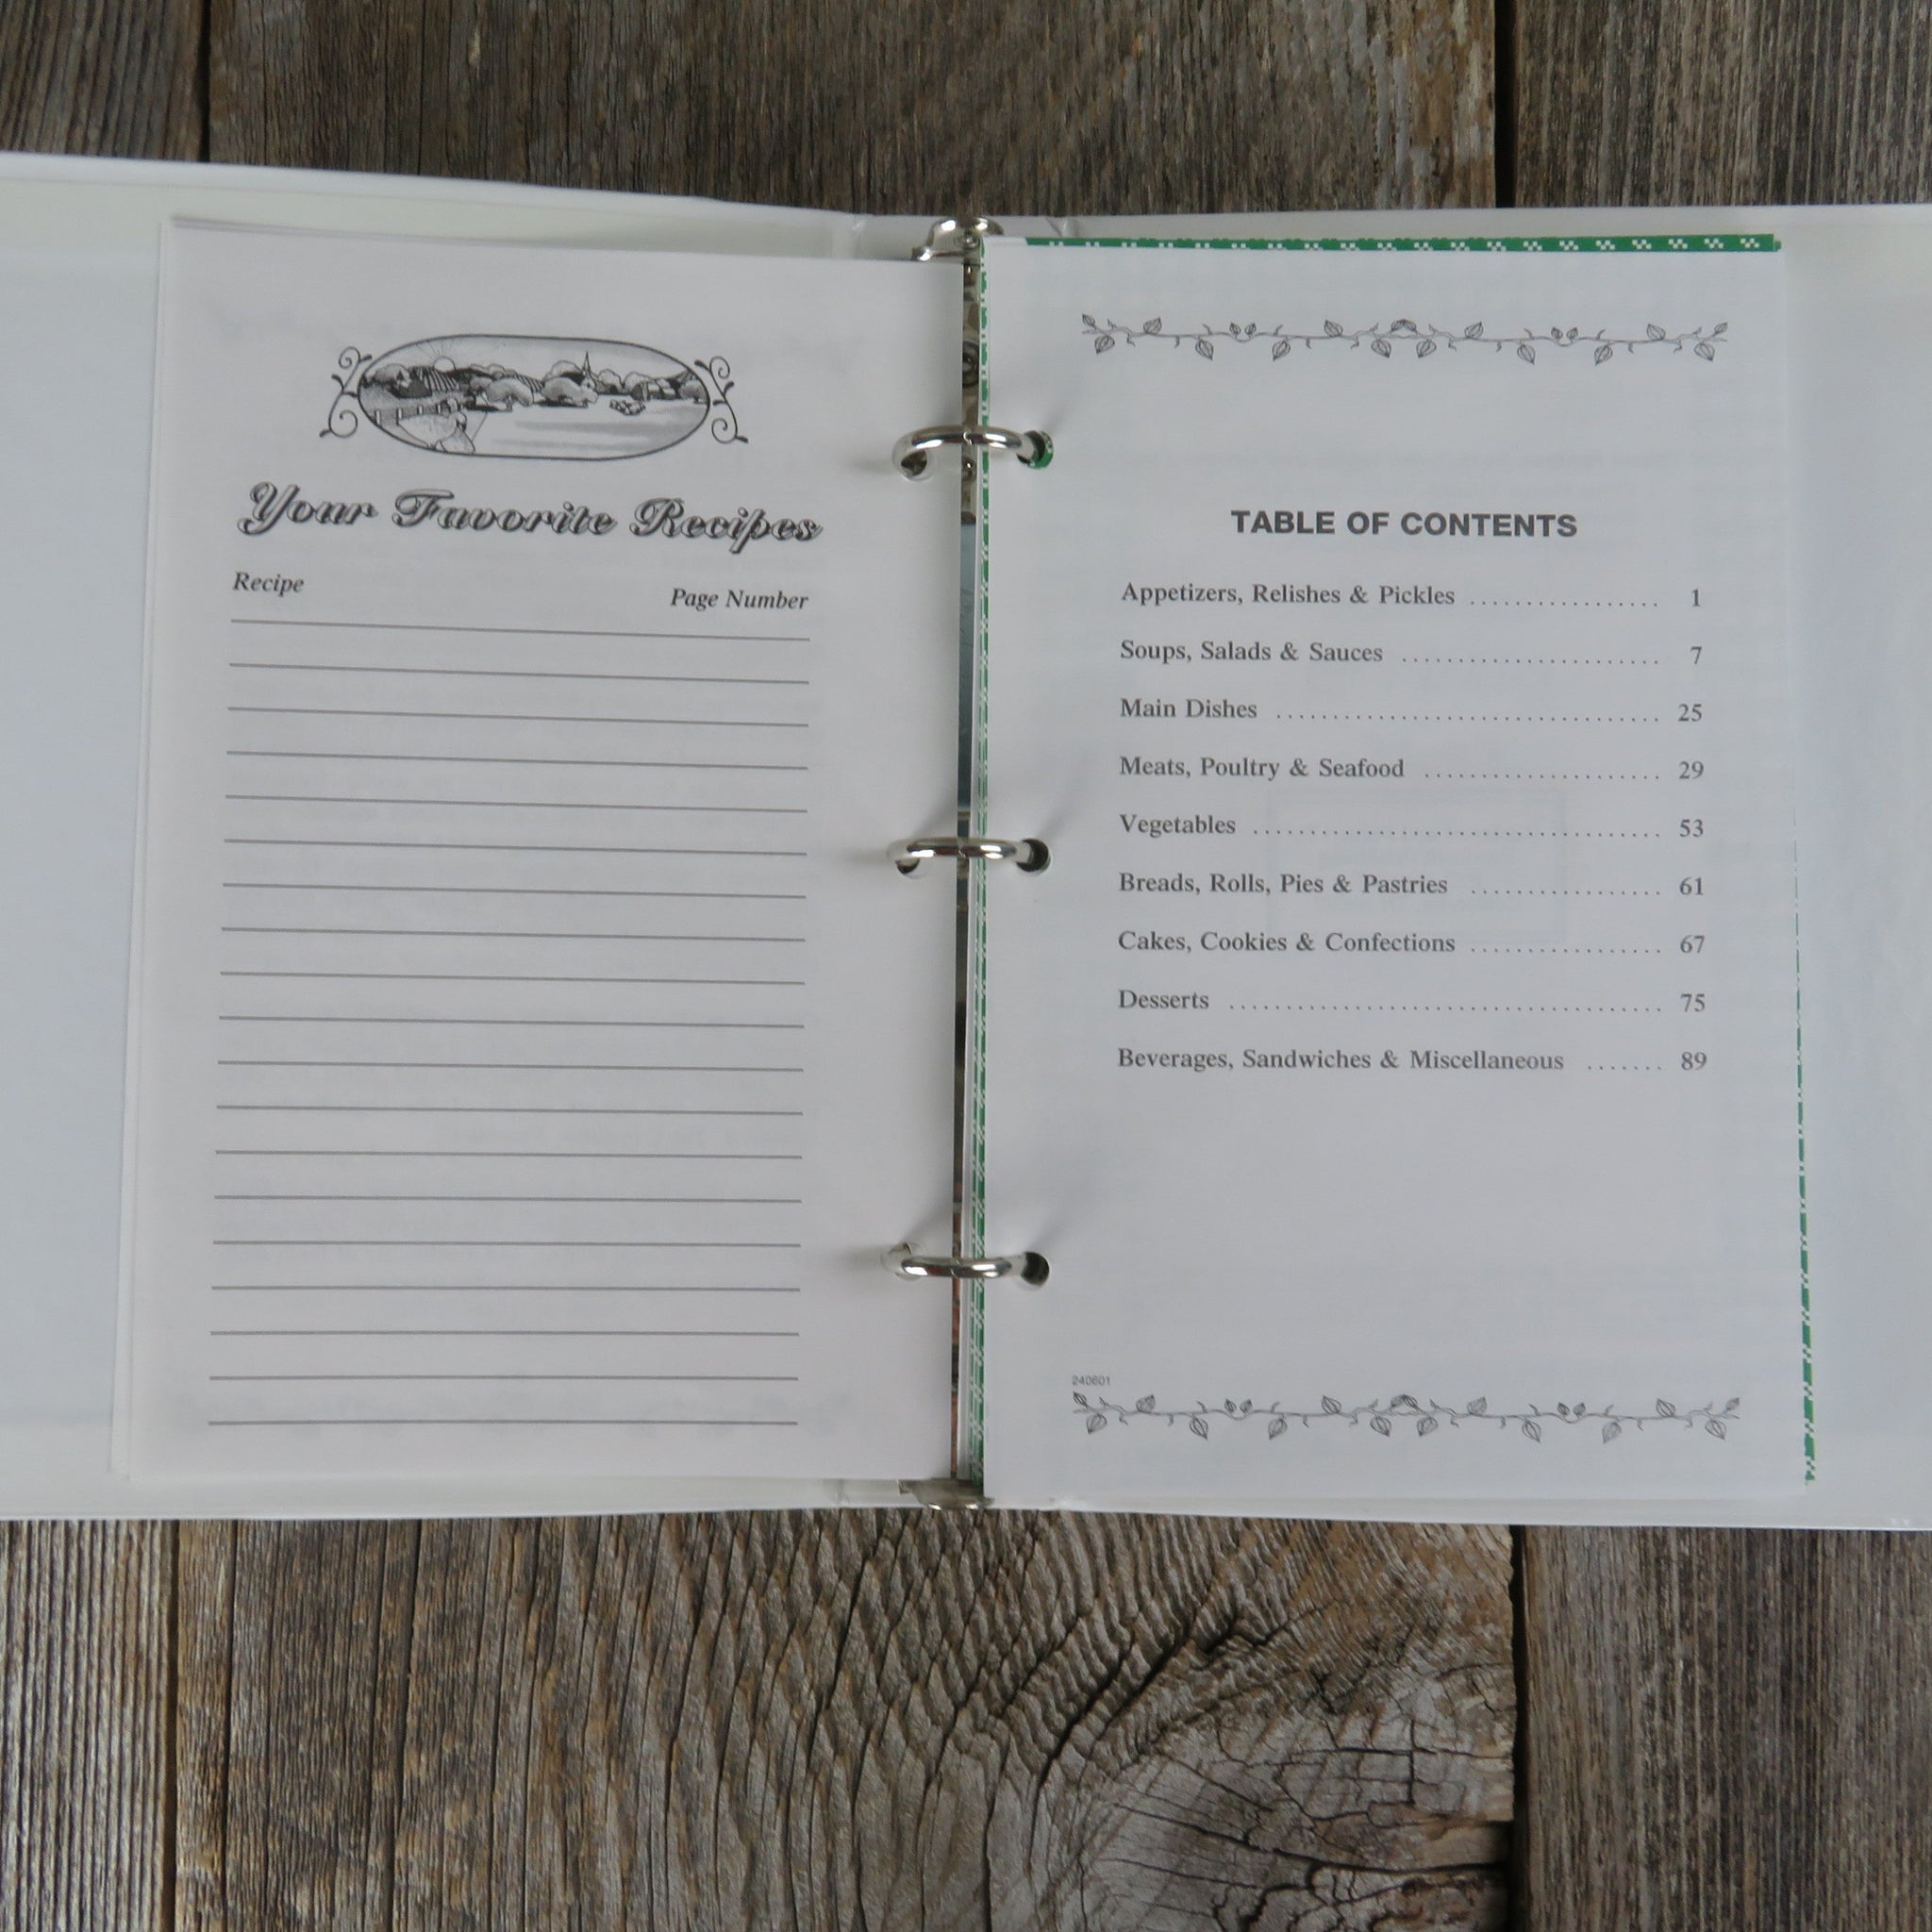 Your Favorite Recipes
Recipe Page Number
TABLE OF CONTENTS
Appetizers, Relishes & Pickles ................. 1
Soups, Salads & Sauces ....................... 7
Main Dishes .................................. 25
Meats, Poultry & Seafood ..................... 29
Vegetables .................................... 53
Breads, Rolls, Pies & Pastries ................. 61
Cakes, Cookies & Confections ................. 67
Desserts ....................................... 75
Beverages, Sandwiches & Miscellaneous ....... 89
240601